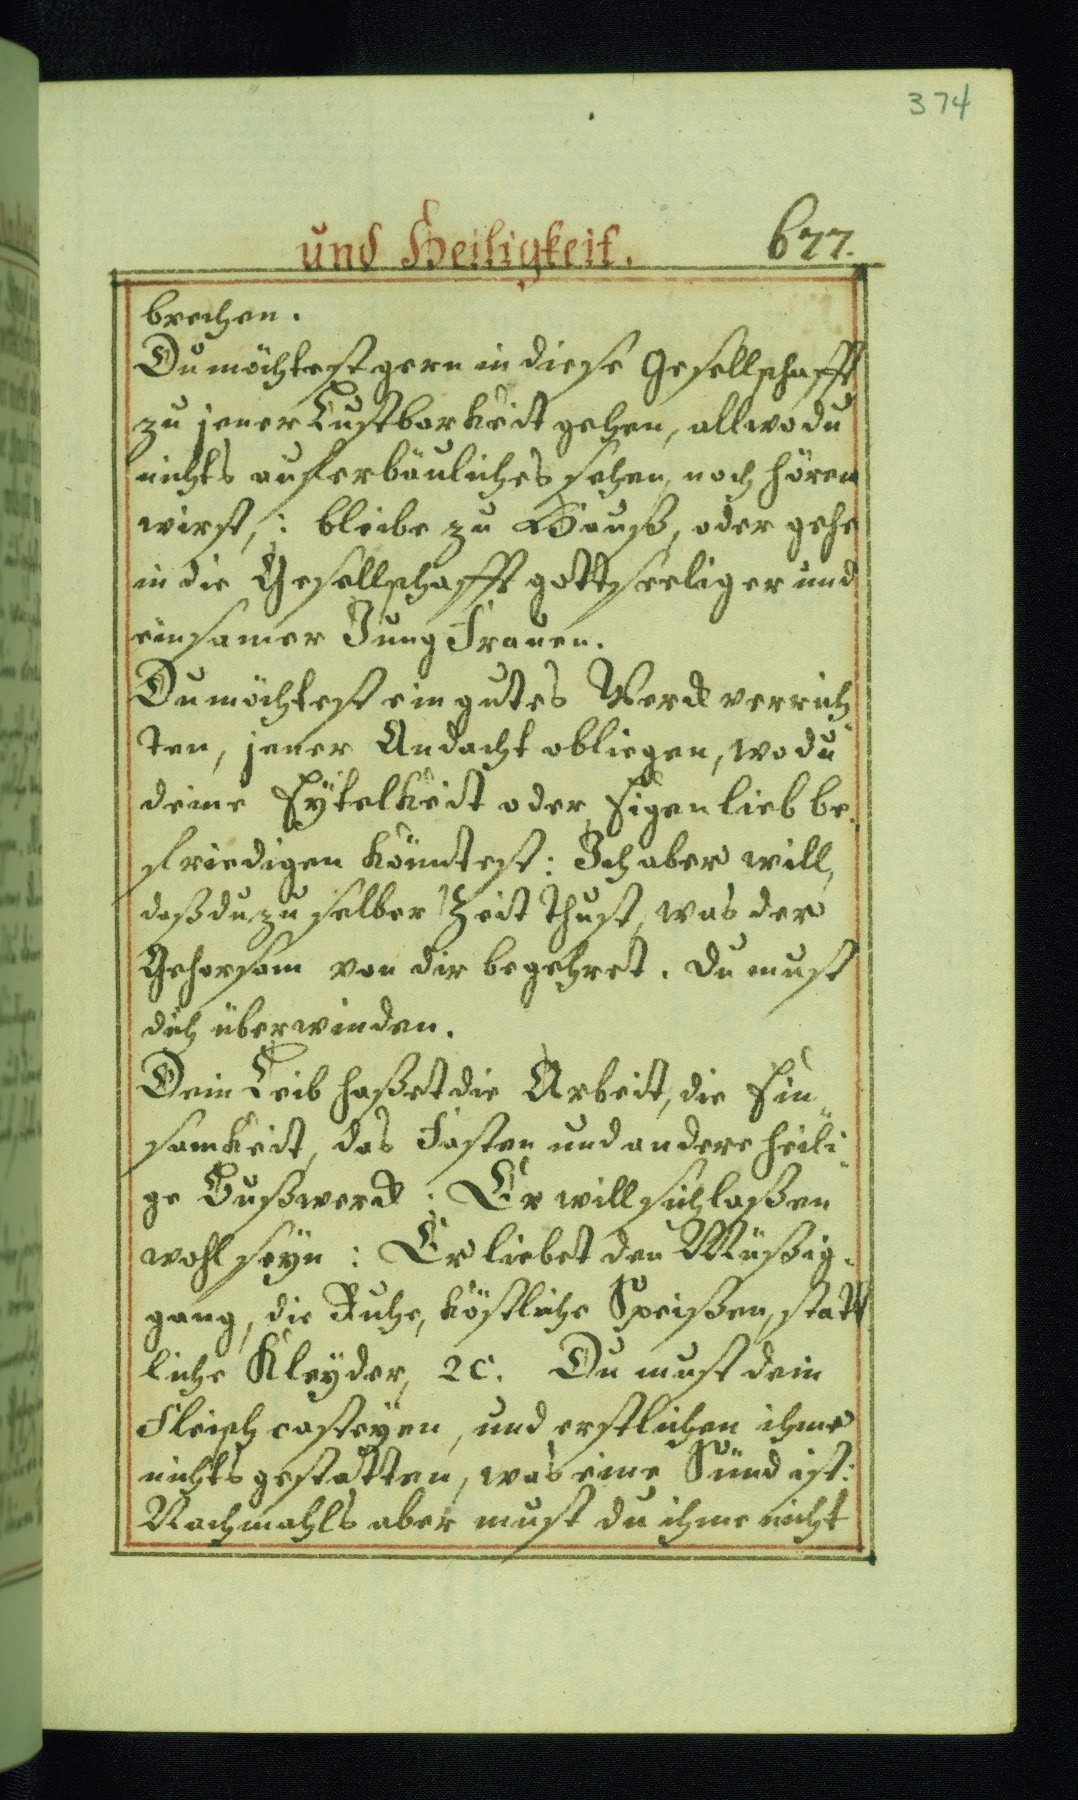 374
und Heiligkeit. 677.
brechen.
Du möchtest gern in diese Gesellschafft
zu jener Lustbarkeit gehen, allwo du
nichts auferbäuliches sehen, noch hören
wirst,: bleibe zu Hauß, oder gehe
in die Gesellschafft gottseeliger und
einsamer Jung Frauen.
Du möchtest ein gutes Werck verrich
ten, jener Andacht obliegen, wo du
deine Eÿtelkeit oder Eigenlieb be-
friedigen köntest: Ich aber will,
daß du zu selber Zeit thust, was der
Gehorsam von dir begehret. Du must
dich überwinden.
Dein Leib haßet die Arbeit, die Ein-
samkeit, das Fasten und andere heili-
ge Bußwerck: Er will sich laßen
wohl seÿn: Er liebet den Müßig-
gang, die Ruhe, köstliche Speißen, statt
liche Kleÿder, 2c. Du must dein
Fleisch casteÿen, und erstlichen ihme
nichts gestatten, was eine Sünd ist:
Nachmahls aber must du ihme nicht